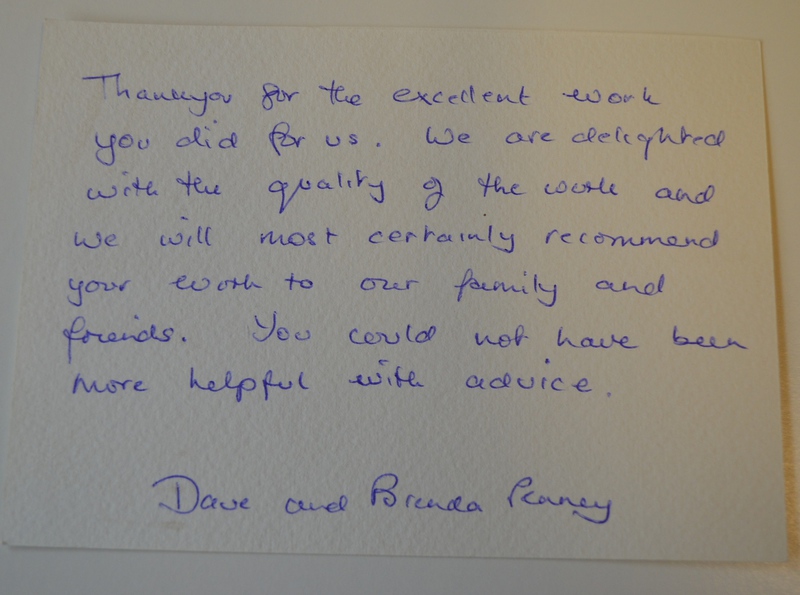 Thankyou for the excellent work
you did for us. We are delighted
with the quality of the work and
we will most certainly recommend
your work to our family and
friends. You could not have been
more helpful with advice.
Dave and Brenda Penney